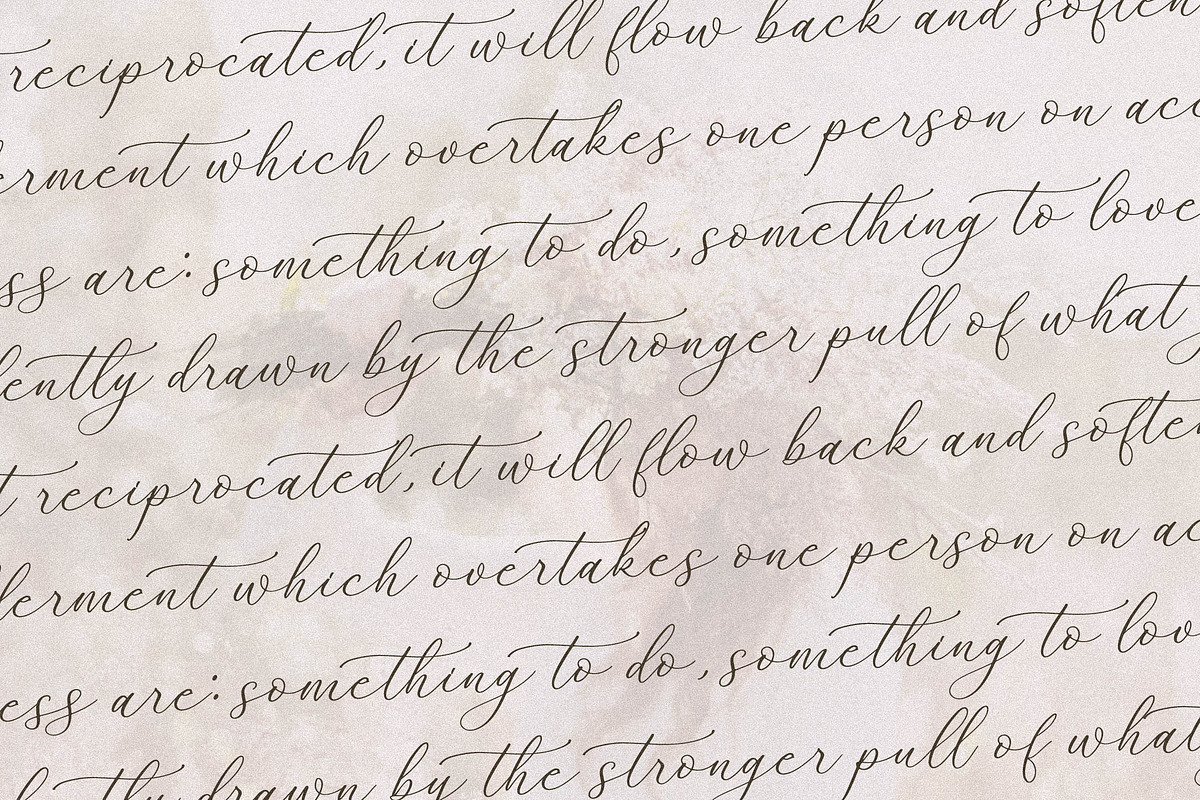 reciprocated, it will flow back and soften
erment which overtakes one person on acc
ss are: something to do, something to love
lently drawn by the stronger pull of what
t reciprocated, it will flow back and soften
ferment which overtakes one person on ac
ess are: something to do, something to lov
lently drawn by the stronger pull of what